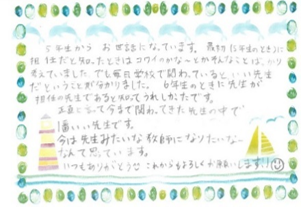 5年生から お世話になっています。最初(5年生のとき)に
担任だと知ったときは コワイのかな〜とかそんなことばかり
考えていました でも毎日学校で関わっていると いい先生
だということが分かりました。 6年生のときに先生が
担任の先生であると知ってうれしかったです。
正直に言って今まで関わってきた先生の中で
1番いい先生です。
今は先生みたいな教師になりたいな〜
なんて思ています。
いつもありがとう!! これからもよろしくお願いします!!